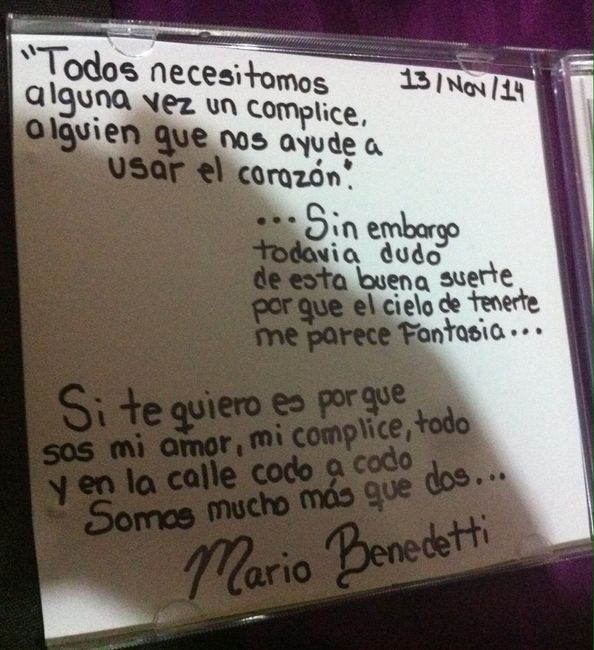 "Todos necesitamos
13/Nov/14
alguna vez un complice,
alguien que nos ayude a
usar el corazón".
...Sin embargo
todavia dudo
de esta buena suerte
por que el cielo de tenerte
me parece Fantasia...
Si te quiero es por que
sos mi amor, mi complice, todo
y en la calle codo a codo
Somos mucho más que dos...
Mario Benedetti